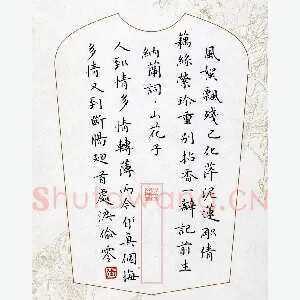 風絮飄殘已化萍泥蓮剛倩
藕絲縈珍重別拈香一瓣記前生
納蘭詞·山花子
人到情多情轉薄而今真個悔
多情又到斷腸迴首處淚偷零
Shufawang.CN